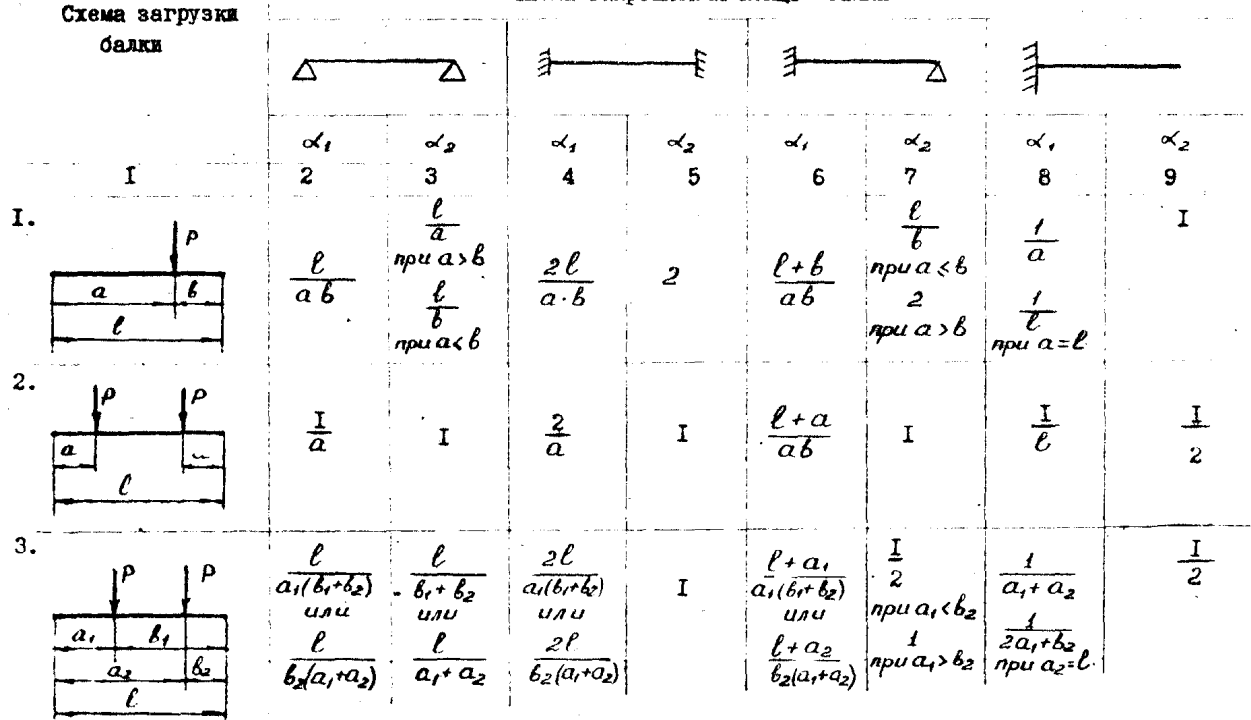 Схема загрузки
балки
α₁ α₂ α₁ α₂ α₁ α₂ α₁ α₂
I 2 3 4 5 6 7 8 9
I.
P
a b
l
l/ab
l/a при a>b
l/b при a<b
2l/a·b
2
l+b/ab
l/b при a≤b
2 при a>b
1/a
1/l при a=l
I
2.
P P
a
l
I/a
I
2/a
I
l+a/ab
I
I/l
I/2
3.
P P
a₁ b₁
a₂ b₂
l
l/a₁(b₁+b₂) или l/b₂(a₁+a₂)
l/b₁+b₂ или l/a₁+a₂
2l/a₁(b₁+b₂) или 2l/b₂(a₁+a₂)
I
l+a₁/a₁(b₁+b₂) или l+a₂/b₂(a₁+a₂)
I/2 при a₁<b₂
1 при a₁>b₂
1/a₁+a₂
1/2a₁+b₂ при a₂=l.
I/2